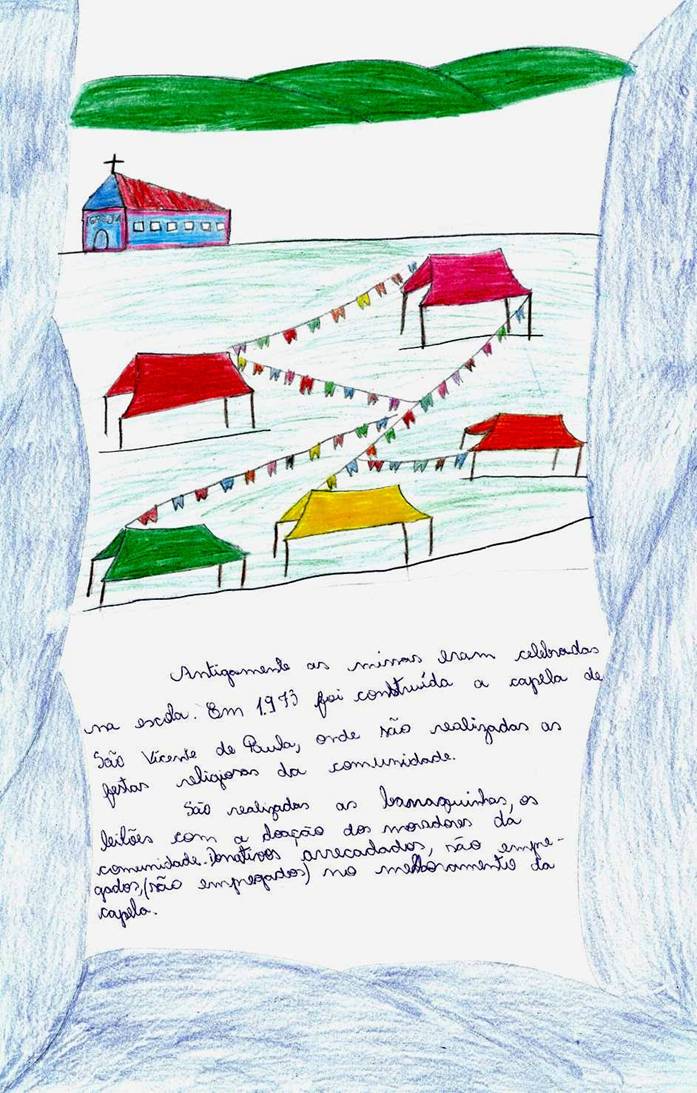 Antigamente as missas eram celebradas
na escola. Em 1973 foi construída a capela de
São Vicente de Paula, onde são realizadas as
festas religiosas da comunidade.
São realizadas as barraquinhas, os
leilões com a doação dos moradores da
comunidade. Donativos arrecadados, são empre-
gados, (são empregados) no melhoramento da
capela.